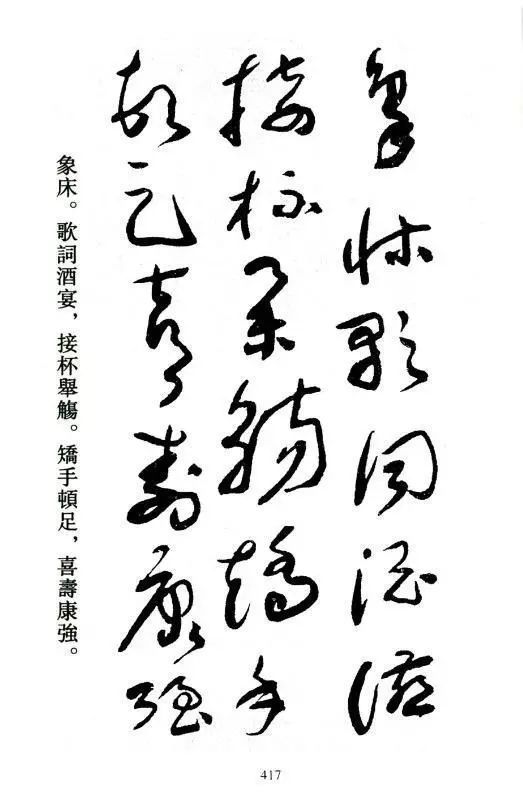 象床歌詞酒宴
接杯舉觴矯手
頓足喜壽康強
象床。歌詞酒宴，接杯舉觴。矯手頓足，喜壽康強。
417